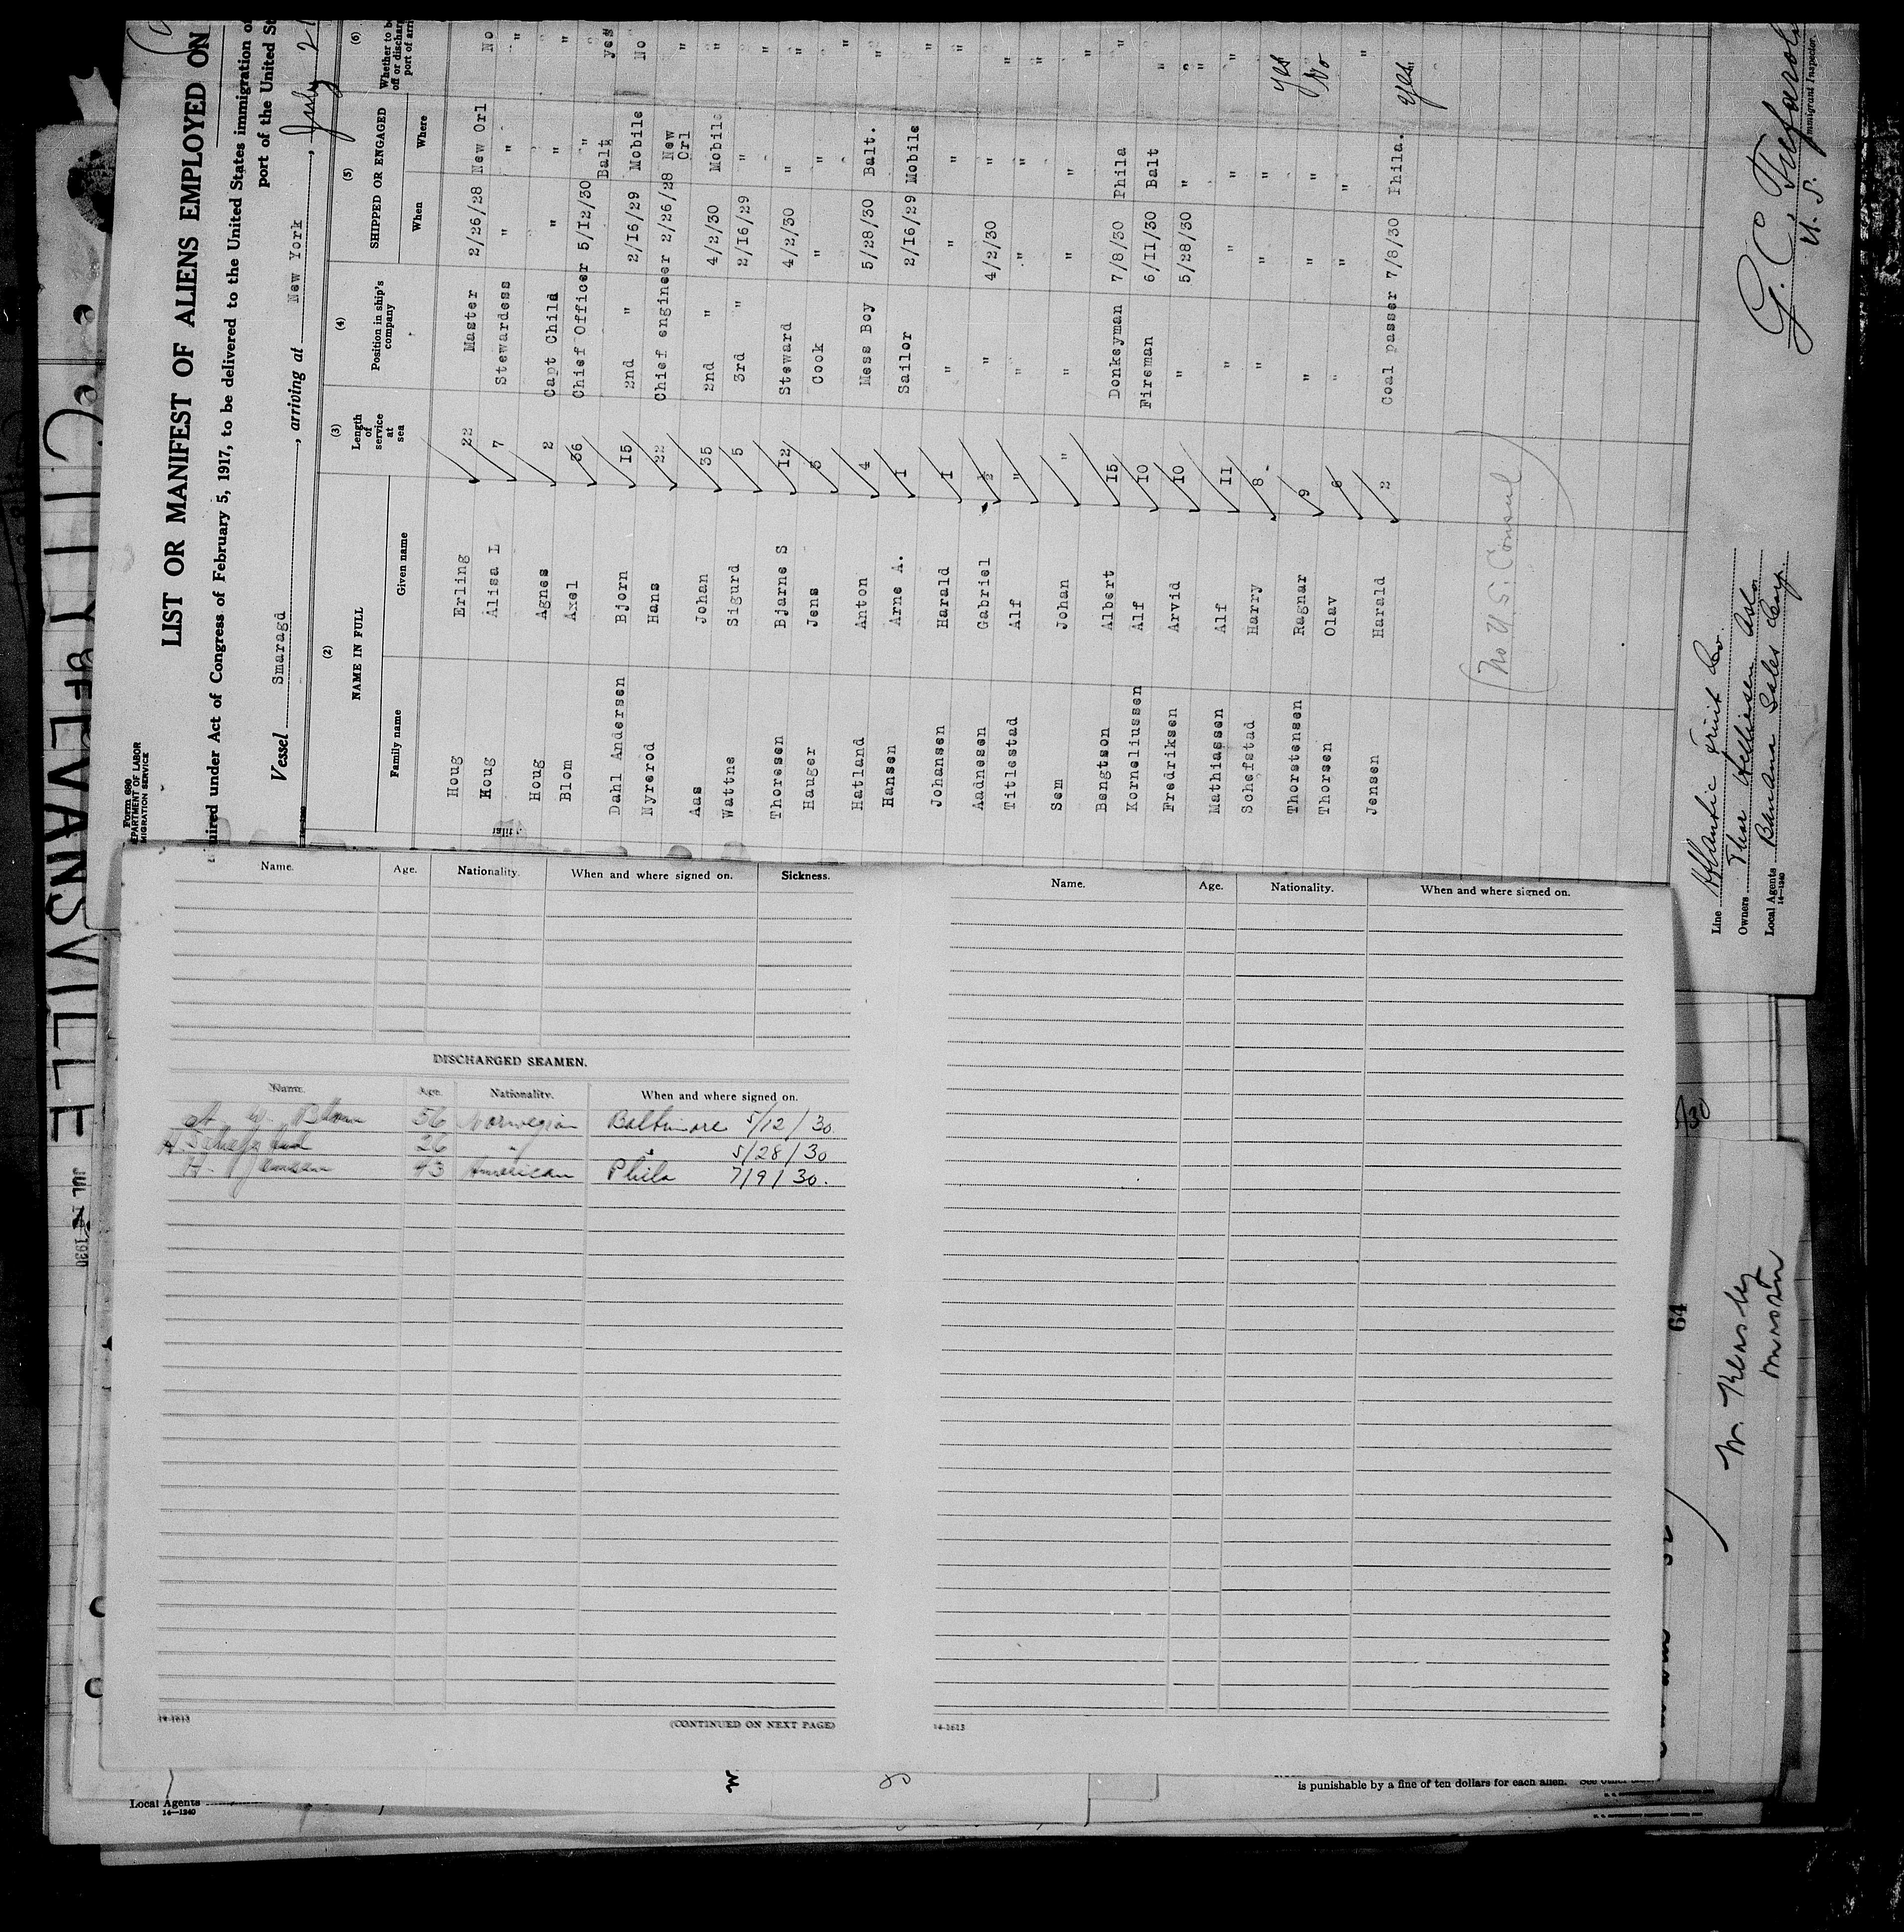 Form 689
DEPARTMENT OF LABOR
IMMIGRATION SERVICE
LIST OR MANIFEST OF ALIENS EMPLOYED ON
uired under Act of Congress of February 5, 1917, to be delivered to the United States immigration
port of the United
Vessel Smaragd , arriving at New York , July 21
(2) (3) (4) (5) (6)
NAME IN FULL Length of service at sea Position in ship's company SHIPPED OR ENGAGED Whether to be off or discharg port of arri
Family name Given name When Where
Houg Erling 22 Master 2/26/28 New Orl No
Houg Alisa L 7 Stewardess " " "
Houg Agnes 2 Capt Child " " "
Blom Axel 36 Chief Officer 5/12/30 " Balt yes
Dahl Andersen Bjorn 15 2nd " 2/16/29 Mobile No
Nyerod Hans 22 Chief engineer 2/26/28 New Orl "
Aas Johan 35 2nd " 4/2/30 Mobile "
Wattne Sigurd 5 3rd " 2/16/29 " "
Thoresen Bjarne S 12 Steward 4/2/30 " "
Hauger Jens 5 Cook " " "
Hatland Anton 4 Mess Boy 5/28/30 Balt. "
Hansen Arne A. 1 Sailor 2/16/29 Mobile "
Johansen Harald 1 " " " "
Aadnesen Gabriel ½ " 4/2/30 " "
Titlestad Alf " " " " "
Sem Johan " " " " "
Bengtson Albert 15 Donkeyman 7/8/30 Phila "
Korneliussen Alf 10 Fireman 6/11/30 Balt "
Fredriksen Arvid 10 " 5/28/30 " "
Mathiassen Alf 11 " " " "
Schefstad Harry 8 " " " yes
Thorstensen Ragnar 9 " " " No
Thorsen Olav 6 " " " "
Jensen Harald 2 Coal passer 7/8/30 Phila. yes
(No U.S. Consul)
Line Atlantic Fruit Co.
Owners Thor
Local Agents Banana Sales Corp.
14—1240
G. C.
U. S. Immigrant Inspector.
CITY of EVANSVILLE
JUL 1930
Name. Age. Nationality. When and where signed on. Sickness.
DISCHARGED SEAMEN.
Name. Age. Nationality. When and where signed on.
A W. Blom 56 Norwegian Baltimore 5/12/30
H. Schefstad 26 " " 5/28/30
H. Jensen 43 American Phila 7/9/30.
14-1613
(CONTINUED ON NEXT PAGE)
Name. Age. Nationality. When and where signed on.
14-1613
/30
64
Local Agents
14—1240
is punishable by a fine of ten dollars for each alien.